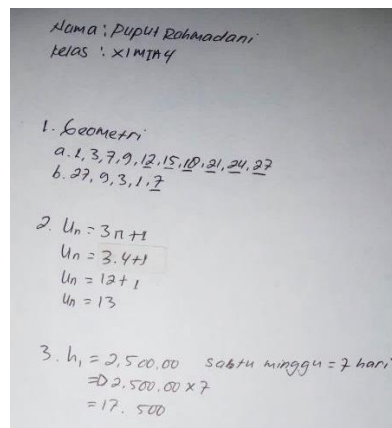 Nama : Puput Rahmadani
Kelas : XI MIA4
1. Geometri
a. 1, 3, 7, 9, 12, 15, 18, 21, 24, 27
b. 27, 9, 3, 1, 7
2. Un = 3n+1
Un = 3.4+1
Un = 12+1
Un = 13
3. h₁ = 2,500.00 Sabtu minggu = 7 hari
=D 2,500.00 x 7
= 17.500